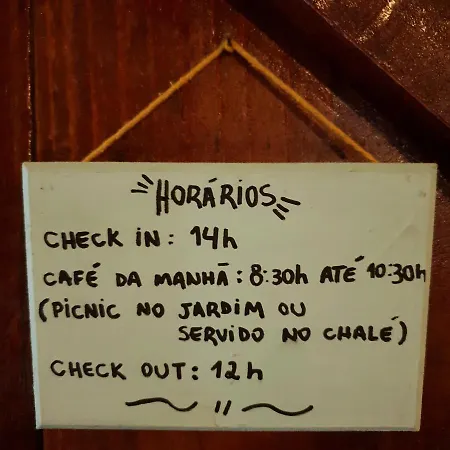 HORÁRIOS
CHECK IN: 14h
CAFÉ DA MANHÃ: 8:30h ATÉ 10:30h
(PICNIC NO JARDIM OU
SERVIDO NO CHALÉ)
CHECK OUT: 12h